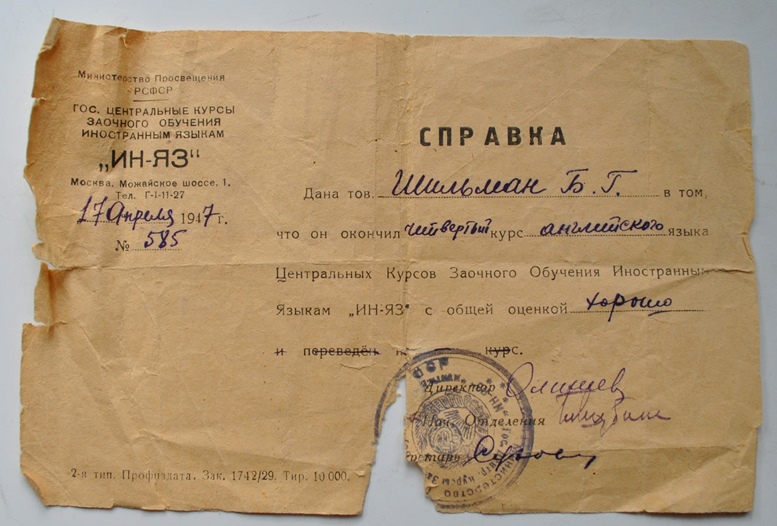 Министерство Просвещения
РСФСР
ГОС. ЦЕНТРАЛЬНЫЕ КУРСЫ
ЗАОЧНОГО ОБУЧЕНИЯ
ИНОСТРАННЫМ ЯЗЫКАМ
„ИН-ЯЗ"
Москва, Можайское шоссе, 1.
Тел. Г-1-11-27
17 Апреля 1947 г.
№ 585
СПРАВКА
Дана тов. Шильман Б. Г. в том,
что он окончил четвертый курс английского языка
Центральных Курсов Заочного Обучения Иностранным
Языкам „ИН-ЯЗ" с общей оценкой хорошо
и переведён курс.
Директор
Нач. Отделения
2-я тип. Профиздата. Зак. 1742/29. Тир. 10 000.